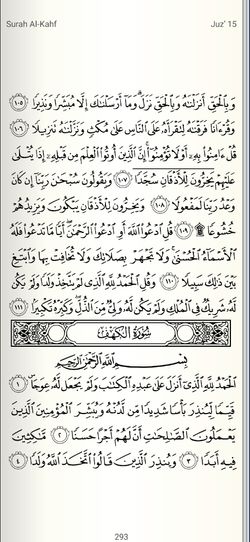 Surah Al-Kahf
Juz' 15
وَبِالْحَقِّ أَنزَلْنَاهُ وَبِالْحَقِّ نَزَلَ ۗ وَمَا أَرْسَلْنَاكَ إِلَّا مُبَشِّرًا وَنَذِيرًا ١٠٥
وَقُرْآنًا فَرَقْنَاهُ لِتَقْرَأَهُ عَلَى النَّاسِ عَلَىٰ مُكْثٍ وَنَزَّلْنَاهُ تَنزِيلًا ١٠٦
قُلْ آمِنُوا بِهِ أَوْ لَا تُؤْمِنُوا ۚ إِنَّ الَّذِينَ أُوتُوا الْعِلْمَ مِن قَبْلِهِ إِذَا يُتْلَىٰ
عَلَيْهِمْ يَخِرُّونَ لِلْأَذْقَانِ سُجَّدًا ١٠٧ وَيَقُولُونَ سُبْحَانَ رَبِّنَا إِن كَانَ
وَعْدُ رَبِّنَا لَمَفْعُولًا ١٠٨ وَيَخِرُّونَ لِلْأَذْقَانِ يَبْكُونَ وَيَزِيدُهُمْ
خُشُوعًا ۩ ١٠٩ قُلِ ادْعُوا اللَّهَ أَوِ ادْعُوا الرَّحْمَٰنَ ۖ أَيًّا مَّا تَدْعُوا فَلَهُ
الْأَسْمَاءُ الْحُسْنَىٰ ۚ وَلَا تَجْهَرْ بِصَلَاتِكَ وَلَا تُخَافِتْ بِهَا وَابْتَغِ
بَيْنَ ذَٰلِكَ سَبِيلًا ١١٠ وَقُلِ الْحَمْدُ لِلَّهِ الَّذِي لَمْ يَتَّخِذْ وَلَدًا وَلَمْ يَكُن
لَّهُ شَرِيكٌ فِي الْمُلْكِ وَلَمْ يَكُن لَّهُ وَلِيٌّ مِّنَ الذُّلِّ ۖ وَكَبِّرْهُ تَكْبِيرًا ١١١
سُورَةُ الْكَهْفِ
بِسْمِ اللَّهِ الرَّحْمَٰنِ الرَّحِيمِ
الْحَمْدُ لِلَّهِ الَّذِي أَنزَلَ عَلَىٰ عَبْدِهِ الْكِتَابَ وَلَمْ يَجْعَل لَّهُ عِوَجًا ۜ ١
قَيِّمًا لِّيُنذِرَ بَأْسًا شَدِيدًا مِّن لَّدُنْهُ وَيُبَشِّرَ الْمُؤْمِنِينَ الَّذِينَ
يَعْمَلُونَ الصَّالِحَاتِ أَنَّ لَهُمْ أَجْرًا حَسَنًا ٢ مَّاكِثِينَ
فِيهِ أَبَدًا ٣ وَيُنذِرَ الَّذِينَ قَالُوا اتَّخَذَ اللَّهُ وَلَدًا ٤
293